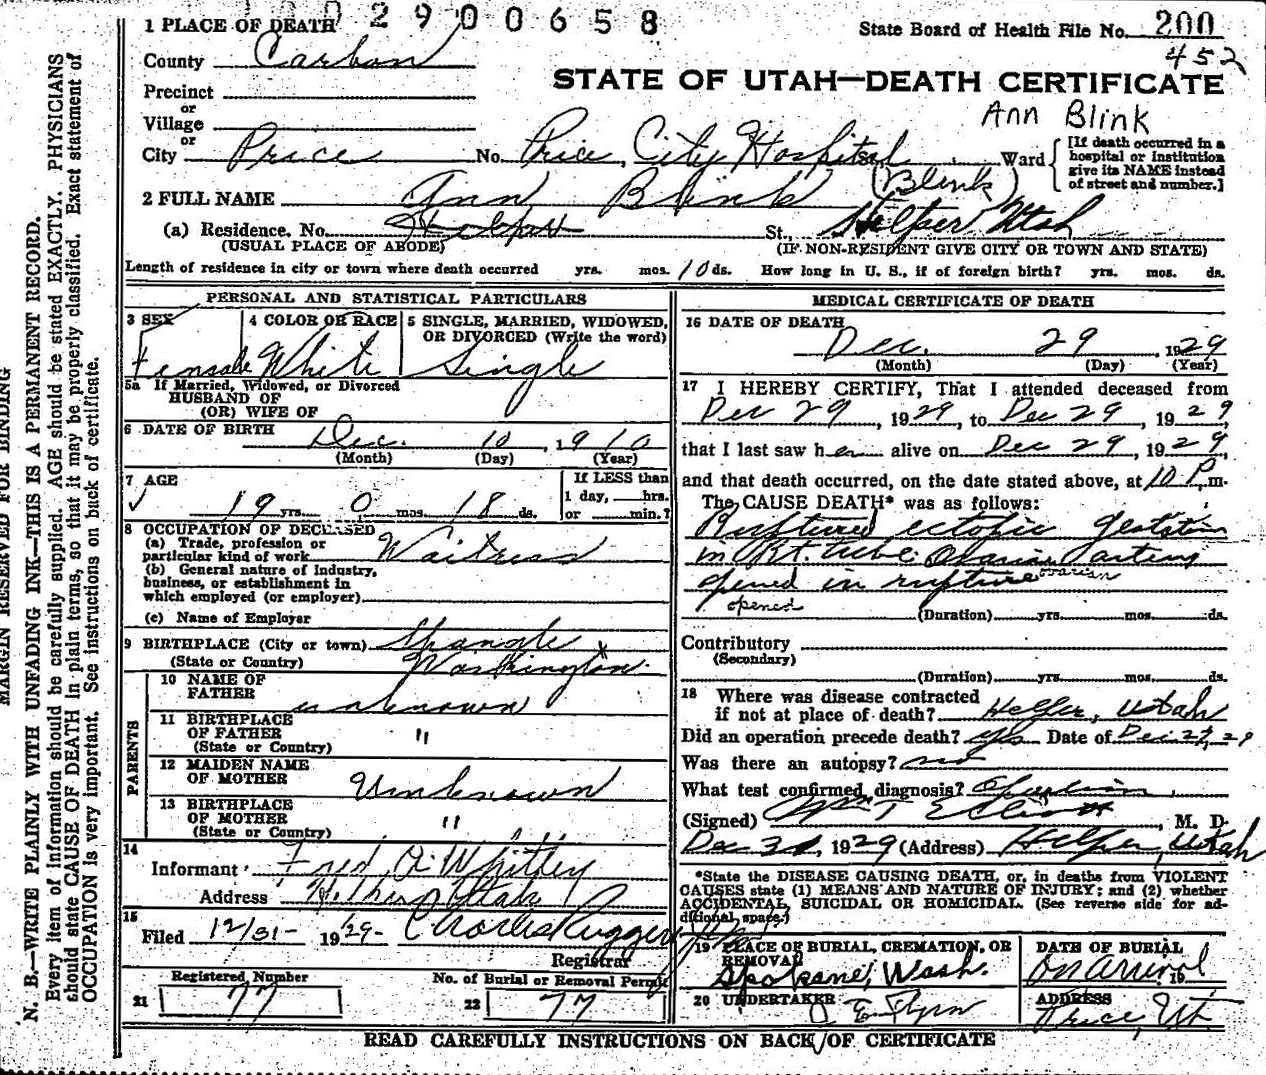 2900658
State Board of Health File No. 200
452
STATE OF UTAH—DEATH CERTIFICATE
Ann Blink
1 PLACE OF DEATH
County Carbon
Precinct
or
Village
or
City Price No. Price, City Hospital Ward
[If death occurred in a hospital or institution give its NAME instead of street and number.]
2 FULL NAME Ann Blink (Blink)
(a) Residence. No. Helper St., Helper Utah
(USUAL PLACE OF ABODE) (IF NON-RESIDENT GIVE CITY OR TOWN AND STATE)
Length of residence in city or town where death occurred yrs. mos. 10 ds. How long in U. S., if of foreign birth? yrs. mos. ds.
PERSONAL AND STATISTICAL PARTICULARS
3 SEX Female
4 COLOR OR RACE White
5 SINGLE, MARRIED, WIDOWED, OR DIVORCED (Write the word) Single
5a If Married, Widowed, or Divorced
HUSBAND OF
(OR) WIFE OF
6 DATE OF BIRTH Dec. 10, 1910
(Month) (Day) (Year)
7 AGE
19 yrs. 0 mos. 18 ds.
If LESS than
1 day, hrs.
or min.?
8 OCCUPATION OF DECEASED
(a) Trade, profession or
particular kind of work Waitress
(b) General nature of industry,
business, or establishment in
which employed (or employer)
(c) Name of Employer
9 BIRTHPLACE (City or town) Spangle
(State or Country) Washington
PARENTS
10 NAME OF
FATHER unknown
11 BIRTHPLACE
OF FATHER "
(State or Country)
12 MAIDEN NAME
OF MOTHER Unknown
13 BIRTHPLACE
OF MOTHER "
(State or Country)
14
Informant Fred A Whitley
Address Helper Utah
15
Filed 12/31- 1929- Charles Ruggeri
Registrar
Registered Number
21 77
No. of Burial or Removal Permit
22 77
MEDICAL CERTIFICATE OF DEATH
16 DATE OF DEATH
Dec. 29, 1929
(Month) (Day) (Year)
17 I HEREBY CERTIFY, That I attended deceased from
Dec 29, 1929, to Dec 29, 1929
that I last saw her alive on Dec 29, 1929,
and that death occurred, on the date stated above, at 10 P.m.
The CAUSE DEATH* was as follows:
Ruptured ectopic gestation
in Rt. tube: Ovarian artery
opened in rupture ovarian
opened
(Duration) yrs. mos. ds.
Contributory
(Secondary)
(Duration) yrs. mos. ds.
18 Where was disease contracted
if not at place of death? Helper, Utah
Did an operation precede death? yes Date of Dec 27, 29
Was there an autopsy? no
What test confirmed diagnosis?
(Signed) Wm T Elliott, M. D.
Dec 31, 1929 (Address) Helper, Utah
*State the DISEASE CAUSING DEATH, or, in deaths from VIOLENT
CAUSES state (1) MEANS AND NATURE OF INJURY; and (2) whether
ACCIDENTAL, SUICIDAL OR HOMICIDAL. (See reverse side for ad-
ditional space.)
19 PLACE OF BURIAL, CREMATION, OR
REMOVAL
Spokane, Wash.
DATE OF BURIAL
On Arrival 19
20 UNDERTAKER
J E Flynn
ADDRESS
Price, Ut.
READ CAREFULLY INSTRUCTIONS ON BACK OF CERTIFICATE
MARGIN RESERVED FOR BINDING
N. B.—WRITE PLAINLY WITH UNFADING INK—THIS IS A PERMANENT RECORD.
Every item of information should be carefully supplied. AGE should be stated EXACTLY. PHYSICIANS
should state CAUSE OF DEATH in plain terms, so that it may be properly classified. Exact statement of
OCCUPATION is very important. See instructions on back of certificate.